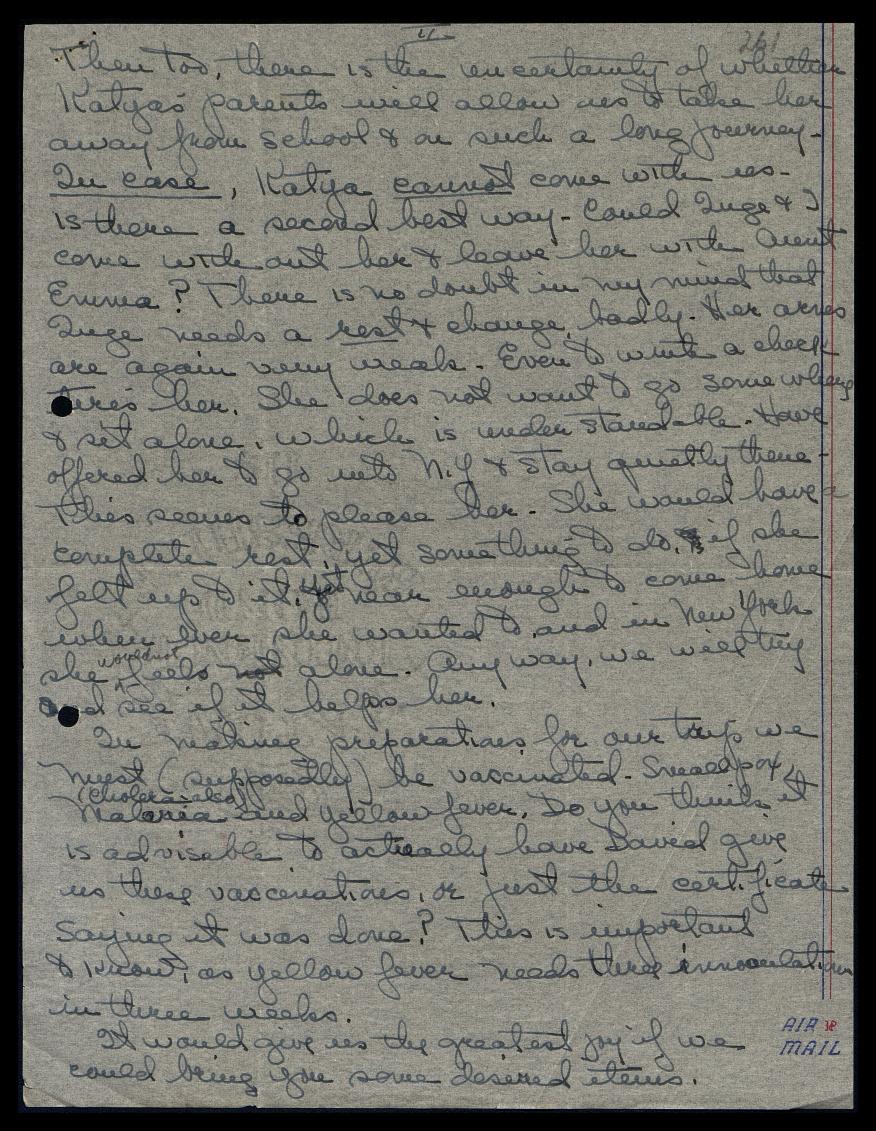 261
Then too, there is the uncertainty of whether
Katya's parents will allow us to take her
away from school & on such a long journey-
In case, Katya cannot come with us-
is there a second best way- Could Inge & I
come without her & leave her with Aunt
Emma? There is no doubt in my mind that
Inge needs a rest & change, badly. Her arms
are again very weak. Even to write a check
tires her. She does not want to go somewhere
& sit alone, which is understandable. Have
offered her to go into N.Y & stay quietly there-
This seems to please her- She would have a
complete rest, yet something to do, if she
felt up to it, yet near enough to come home
when ever she wanted to, and in New York
wouldnot
she feels not alone. Any way, we will try
and see if it helps her.
In making preparations for our trip we
must (supposedly) be vaccinated- Smallpox,
(Cholera also)
Malaria and yellow fever. Do you think it
is advisable to actually have David give
us these vaccinations, or just the certificate
saying it was done? This is important
to know, as yellow fever needs three innoculation
in three weeks.
It would give us the greatest joy if we
could bring you some desired items.
AIR
MAIL